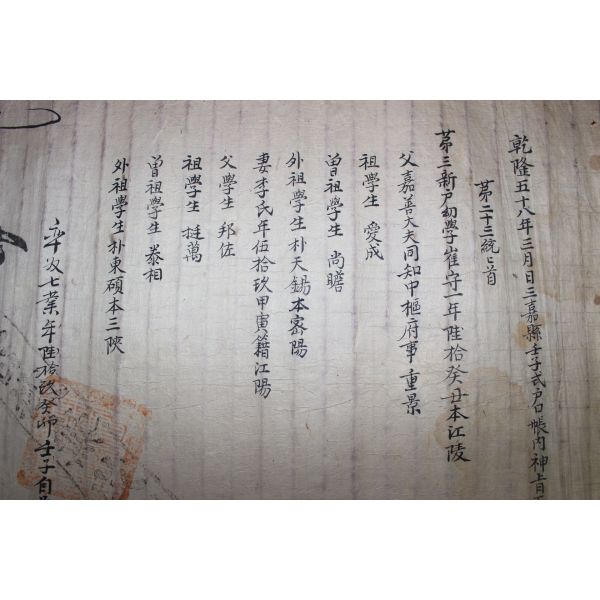 乾隆五十八年三月日三嘉縣壬子式戶口帳內神旨
第二十三統〻首
第三新戶幼學崔守一年陸拾癸丑本江陵
父嘉善大夫同知中樞府事重景
祖學生 愛成
曾祖學生 尚瞻
外祖學生朴天錫本密陽
妻李氏年伍拾玖甲寅籍江陽
父學生 邦佐
祖學生 挺萬
曾祖學生 泰相
外祖學生朴東碩本三陝
率奴七業年陸拾玖癸卯壬子自